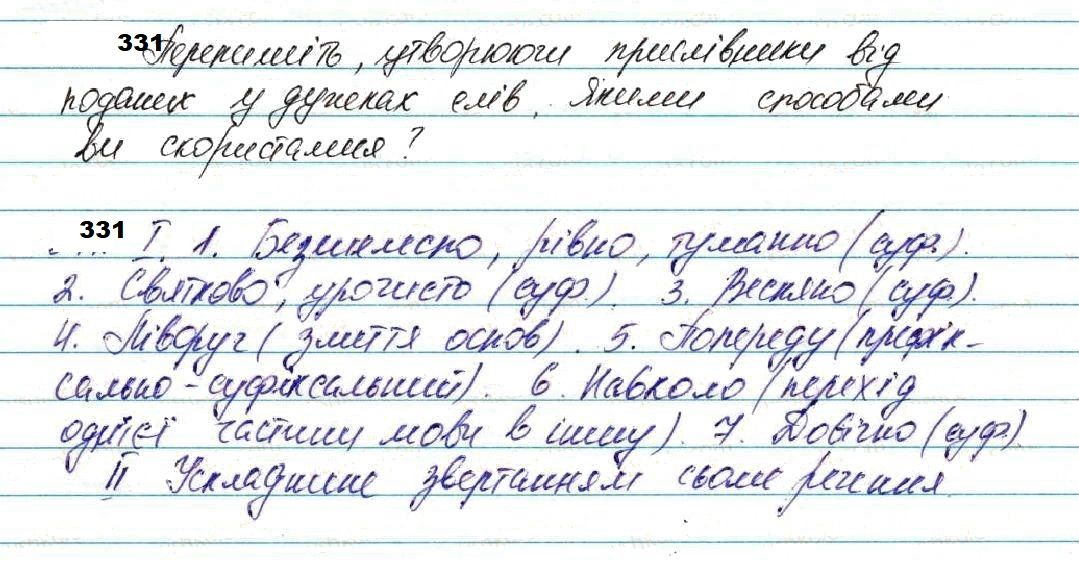 331 Перепишіть, утворюючи прислівники від
поданих у дужках слів. Якими способами
ви скористалися?
331 I. 1. Безшелесно, рівно, туманно (суф.).
2. Святково, урочисто (суф.). 3. Весняно (суф).
4. Ліворуч (злиття основ). 5. Попереду (префік-
сально-суфіксальний). 6 Навколо (перехід
однієї частини мови в іншу). 7. Довічно (суф).
II Ускладнене звертанням сьоме речення